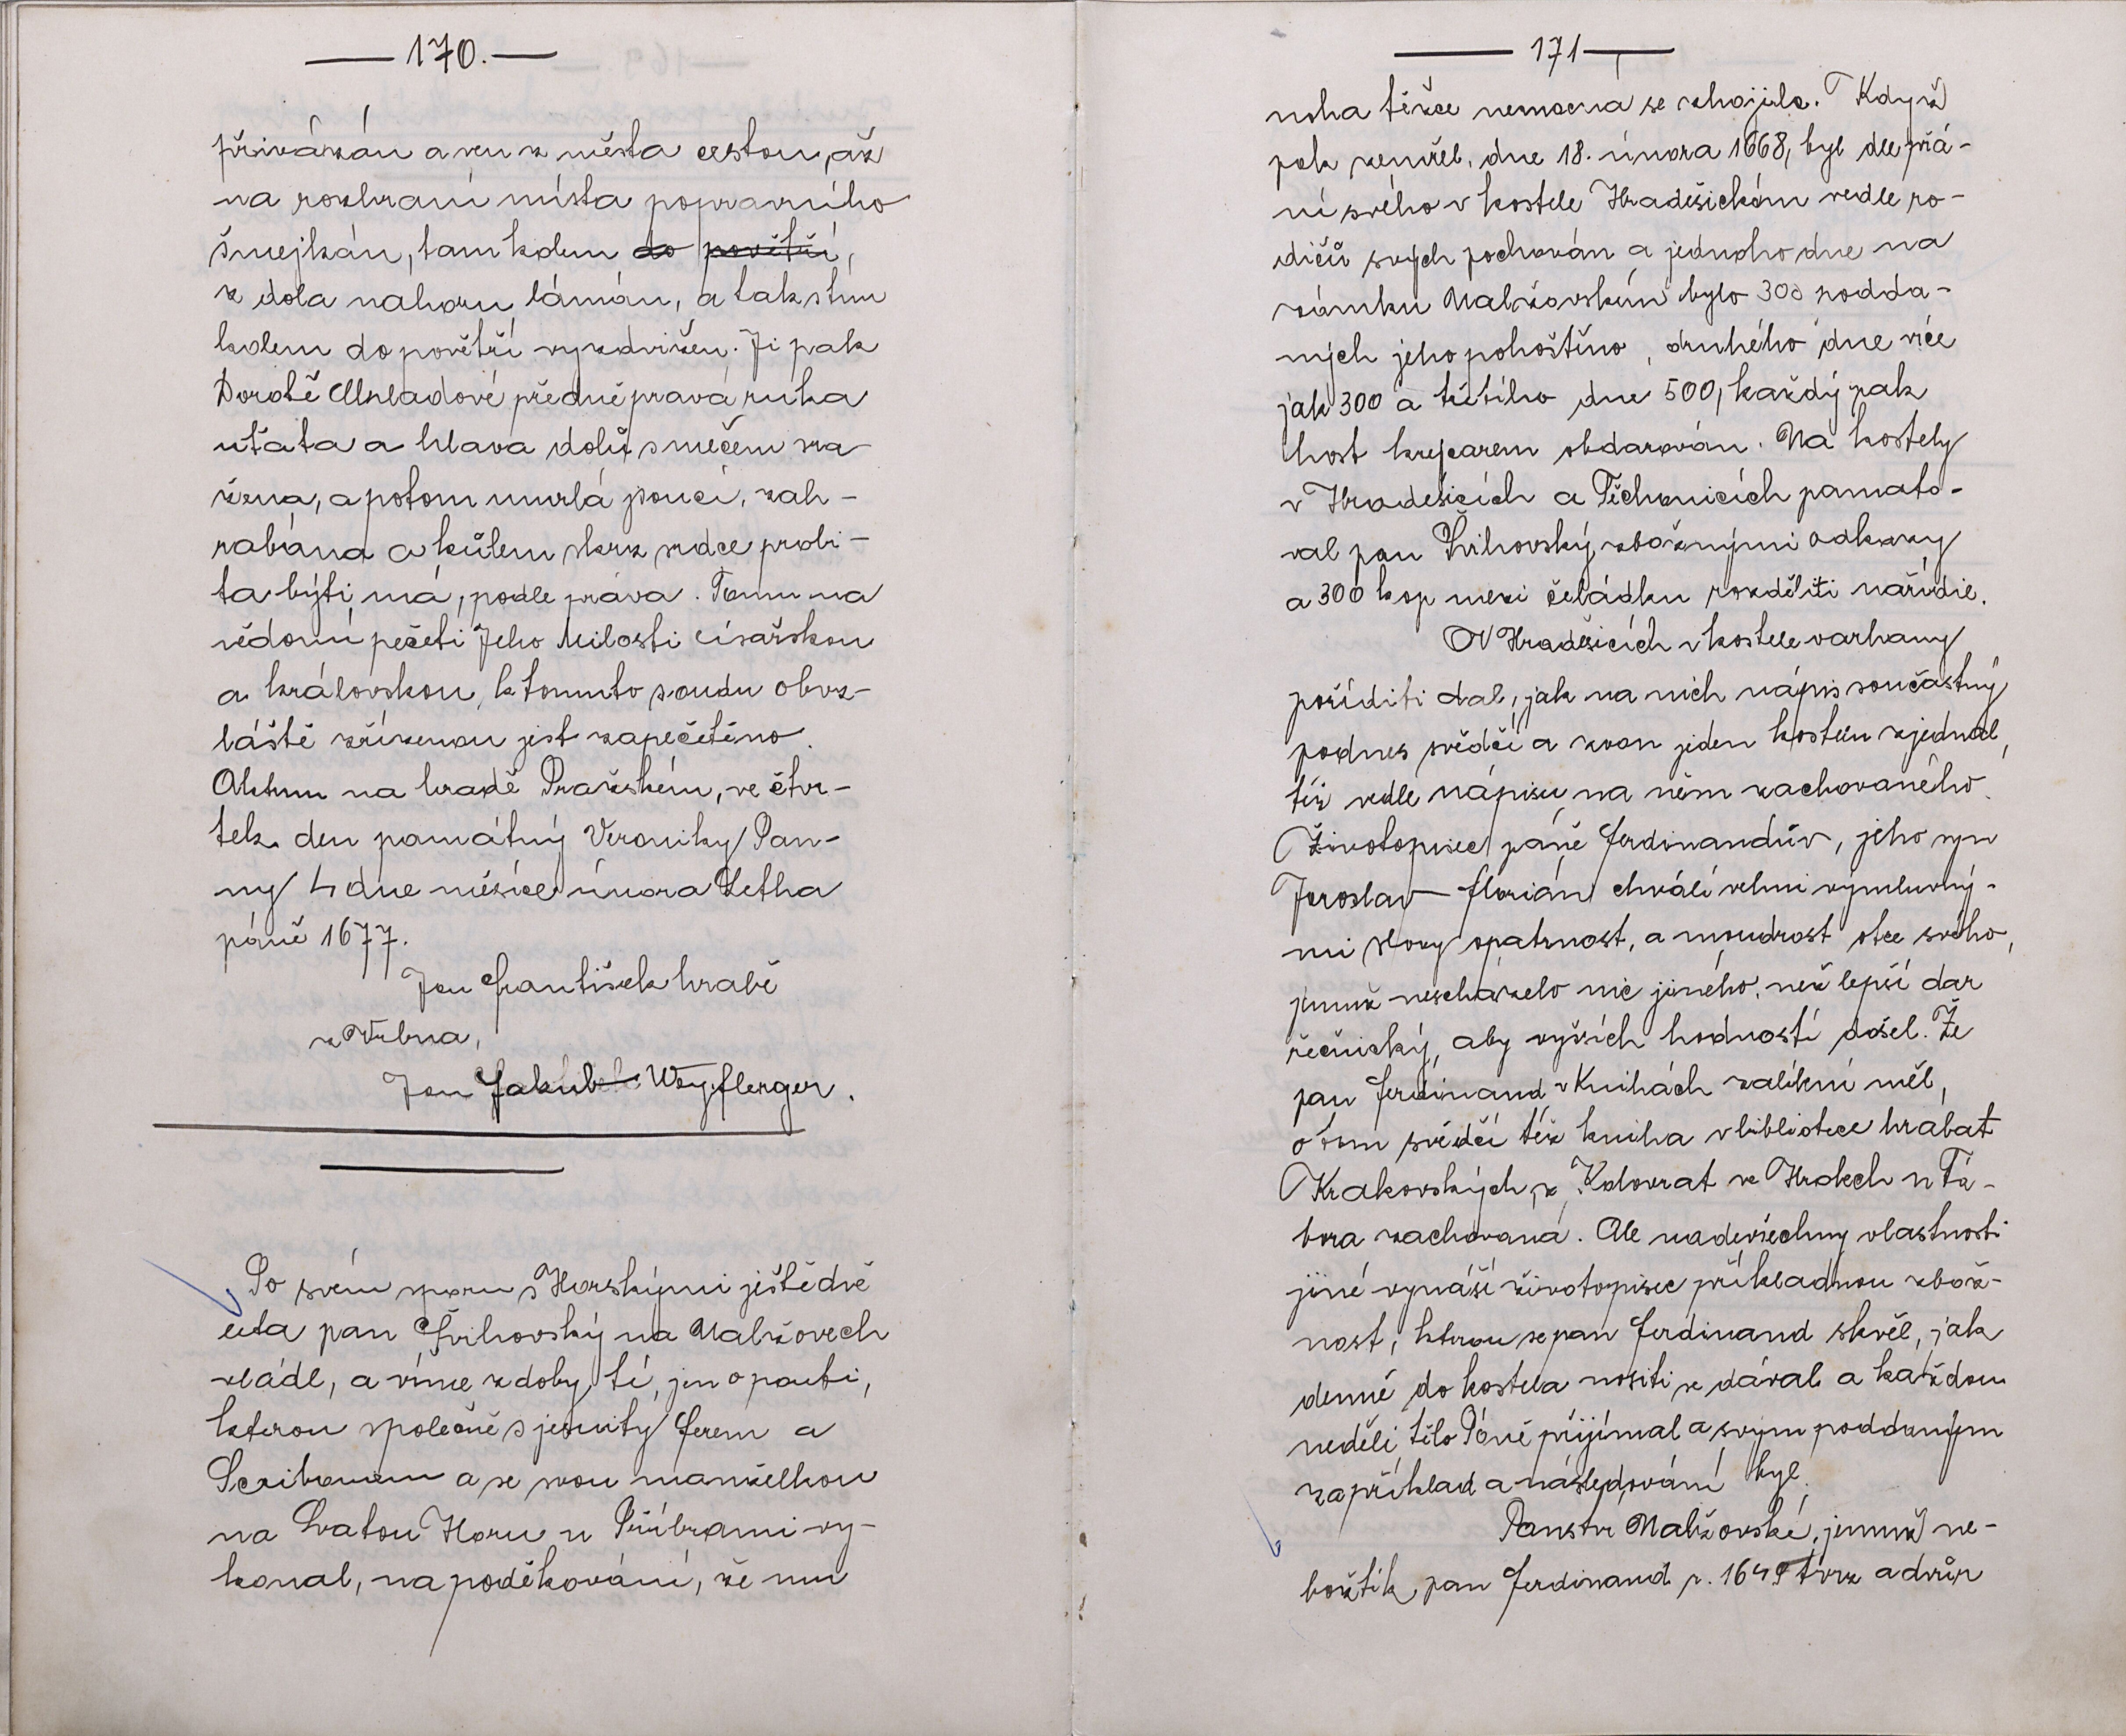 — 170. —
přivázán a ven z města cestou, až
na rozhraní místa popravního
šmejkán, tam kolem do povětří,
z dola nahoru lámán, a tak s tím
kolem do povětří vyzdvižen. Ji pak
Dorotě Mxladové předně pravá ruka
uťata a hlava dolů s mečem sra-
žena, a potom umrlá jsoucí, zah-
rabána a kůlem skrz srdce probi-
ta býti má, podle práva. Tomu na
vědomí pečetí Jeho Milosti císařskou
a královskou, k tomuto soudu obvz-
láště zřízenou jest zapečetěno.
Aktum na hradě Pražském, ve čtvr-
tek den památný Veroniky Pan-
ny 4 dne měsíce února Letha
páně 1677.
Jan František hrabě
z Vrbna,
Jan Jakub Weyflenger.
Po svém sporu s Horskými ještě dvě
léta pan Švihovský na Nalžovech
vládl, a víme z doby té, jen o pouti,
kterou společně s jesuity Ferem a
Scribonem a se svou manželkou
na Svatou Horu u Příbrami vy-
konal, na poděkování, že mu
— 171 —
noha těžce nemocná se zhojila. Když
pak zemřel, dne 18. února 1668, byl dle přá-
ní svého v kostele Hradešickém vedle ro-
dičů svých pochován a jednoho dne na
zámku Nalžovském bylo 300 podda-
ných jeho pohoštěno, druhého dne více
jak 300 a třetího dne 500, každý pak
host krejcarem obdarován. Na kostely
v Hradešicích a Těchonicích pamato-
val pan Švihovský, zbožnými odkazy
a 300 kop mezi čeládku rozděliti nařídil.
V Hradešicích v kostele varhany
poříditi dal, jak na nich nápis součastný
podnes svědčí a zvon jeden kostelu zjednal,
též vedle nápisu na něm zachovaného.
Životopisec páně Ferdinandův, jeho syn
Jaroslav – Florián chválí velmi výmluvný-
mi slovy opatrnost, a moudrost otce svého,
jemuž nescházelo nic jiného, než lepší dar
řečnický, aby vyšších hodností došel. Že
pan Ferdinand v Knihách zalíbení měl,
o tom svědčí též kniha v bibliotece hrabat
Krakovských, z Kolovrat ve Hrádech u Tá-
bora zachovaná. Ale nadevšechny vlastnosti
jiné vynáší životopisec příkladnou zbož-
nost, kterou se pan Ferdinand skvěl, jak
denně do kostela nositi se dával a každou
neděli tělo Páně přijímal a svým poddaným
za příklad a následování byl.
Panství Nalžovské, jemuž ne-
božtík pan Ferdinand r. 1649 tvrz a dvůr